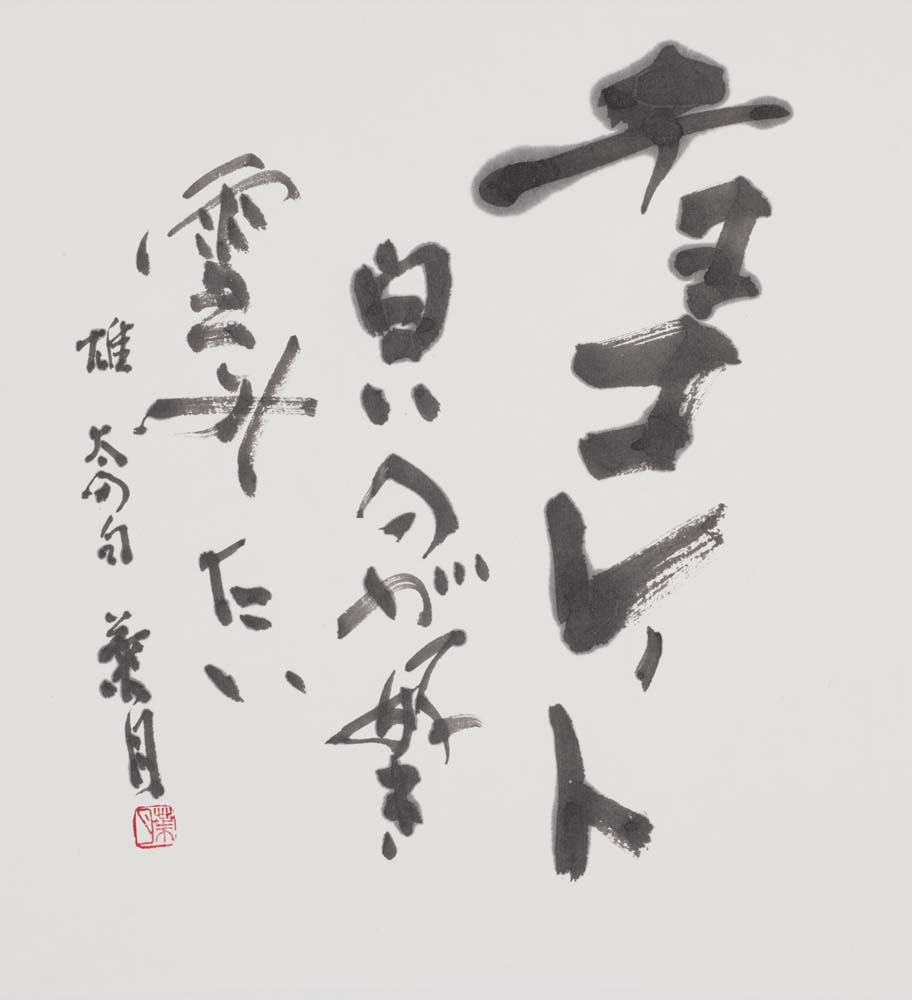 チョコレート
白いのが好き
雲みたい
雄太句 葉月
葉月